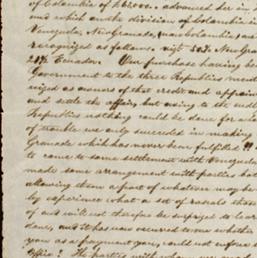 of Colombia of £6,2000. advanced her in
and which on the division of Colombia in
Venezuela, New Granada, (now Colombia) and
recognized as follows. viz: 50% New Gran
21½ Ecuador. Our purchase having be
Government to the three Republics ment
nized as owners of that credit and appoin
and settle the affair, but owing to the
Republics nothing could be done for
of trouble we only succeeded in making
Granada which has never been fulfilled!!
to come to some settlement with Venezuela
made some arrangement with parties
allowing them a part of whatever may be
by experience what a set of rascals
of us will not therefore be surprised to lear
done, and it has now occurred to me whether
you as a foreigner, could not enforce
Office? The parties with whom we made